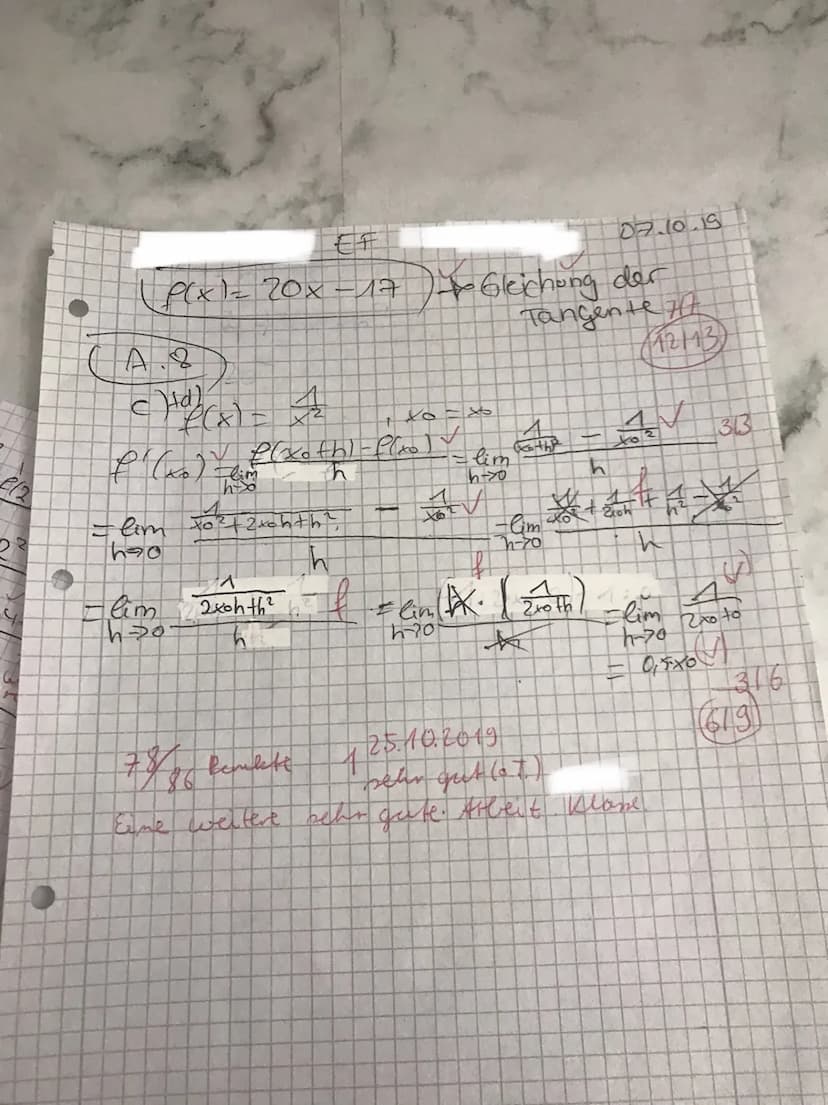 EF 07.10.19
f(x) = 20x - 17 → Gleichung der
Tangente 7/7
12/13
A. 2
c)+d) f(x) = 1/x² , x0 = x0
f'(x0) = lim h→0 (f(x0+h) - f(x0))/h = lim h→0 (1/(x0+h)² - 1/x0²)/h 3/3
= lim h→0 (1/(x0²+2x0h+h²) - 1/x0²)/h = lim h→0 (1/x0² + 1/2x0h + 1/h² - 1/x0²)/h f
= lim h→0 (1/(2x0h+h²))/h f = lim h→0 (h · (1/(2x0+h)))/h f = lim h→0 1/(2x0+0) (✓)
= 0,5x0 (✓)
3/6
6/9
78/86 Punkte 1 25.10.2019
sehr gut (o.T.)
Eine weitere sehr gute Arbeit. Klasse